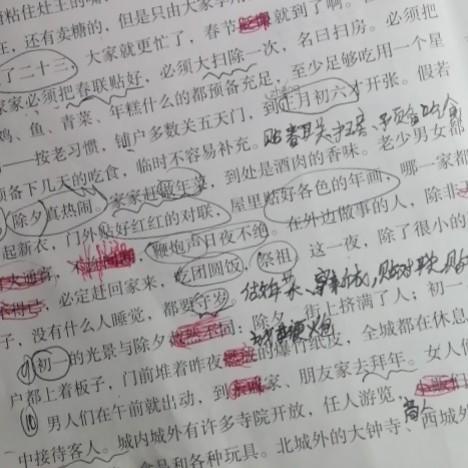 粘住灶王的嘴
王，还有卖糖的，但是只由大家享用
了二十三，大家就更忙了，春节 就到了啊。
家家必须把春联贴好，必须大扫除一次，名曰扫房。必须把
鸡、鱼、青菜、年糕什么的都预备充足，至少足够吃用一个星
——按老习惯，铺户多数关五天门，到正月初六才开张。假若
预备下几天的吃食，临时不容易补充。
除夕真热闹。家家赶做年菜，到处是酒肉的香味。老少男女都
起新衣，门外贴好红红的对联，屋里贴好各色的年画，哪一家都
鞭炮声日夜不绝。在外边做事的人，除非
必定赶回家来，吃团圆饭，祭祖。这一夜，除了很小的
子，没有什么人睡觉，都要守岁。
初一的光景与除夕 ：除夕，街上挤满了人；初一
户都上着板子，门前堆着昨夜 的爆竹纸皮，全城都在休息
男人们在午前就出动，到 家、朋友家去拜年。女人们
中接待客人。城内城外有许多寺院开放，任人游览，
和各种玩具。北城外的大钟寺、西城外